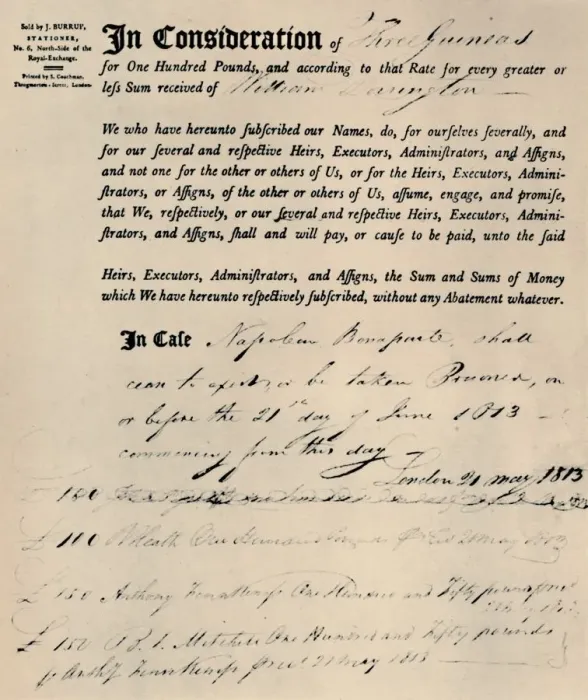 Sold by J. BURRUP,
STATIONER,
No. 6, North-Side of the
Royal-Exchange.
Printed by S. Couchman,
Throgmorton-Street, London.
In Consideration of Three Guineas
for One Hundred Pounds, and according to that Rate for every greater or
leſs Sum received of William Dorrington
We who have hereunto ſubſcribed our Names, do, for ourſelves ſeverally, and
for our ſeveral and reſpective Heirs, Executors, Adminiſtrators, and Aſſigns,
and not one for the other or others of Us, or for the Heirs, Executors, Admini-
ſtrators, or Aſſigns, of the other or others of Us, aſſume, engage, and promiſe,
that We, reſpectively, or our ſeveral and reſpective Heirs, Executors, Admini-
ſtrators, and Aſſigns, ſhall and will pay, or cauſe to be paid, unto the ſaid
Heirs, Executors, Adminiſtrators, and Aſſigns, the Sum and Sums of Money
which We have hereunto reſpectively ſubſcribed, without any Abatement whatever.
In Caſe Napoleon Bonaparte, shall
cease to exist, or be taken Prisoner, on
or before the 21st day of June 1813 —
commencing from this day —
London 21 may 1813
£ 100
£ 100 Heath One Hundred 21 may 1813
£ 150 Anthony One Hundred and Fifty pounds
£ 150 Mitchell One Hundred and Fifty pounds
21 may 1813